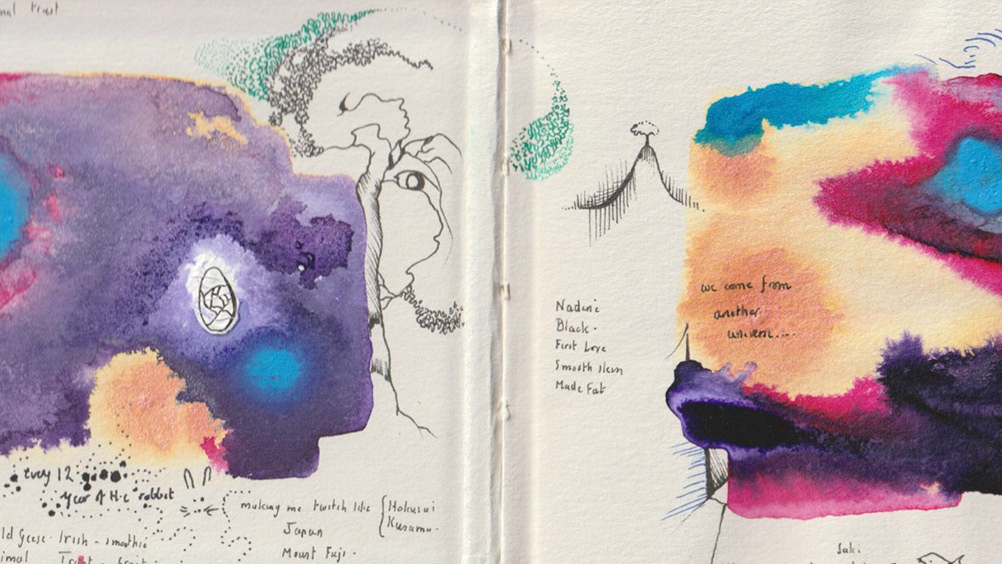 Trust
every 12
year of the rabbit
making me twitch like { Hokusai
Kusama.
Japan
Mount Fuji.
ld Geese. Irish - smoothie
imal Trust
Nadine
Black.
First Love
Smooth skin
Made Fat
we come from
another
univers...
Saki